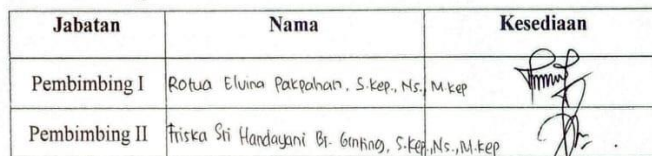 Jabatan Nama Kesediaan
Pembimbing I Rotua Elvina Pakpahan, S.Kep., Ns., M.Kep
Pembimbing II Friska Sri Handayani Br. Ginting, S.Kep.,Ns.,M.Kep